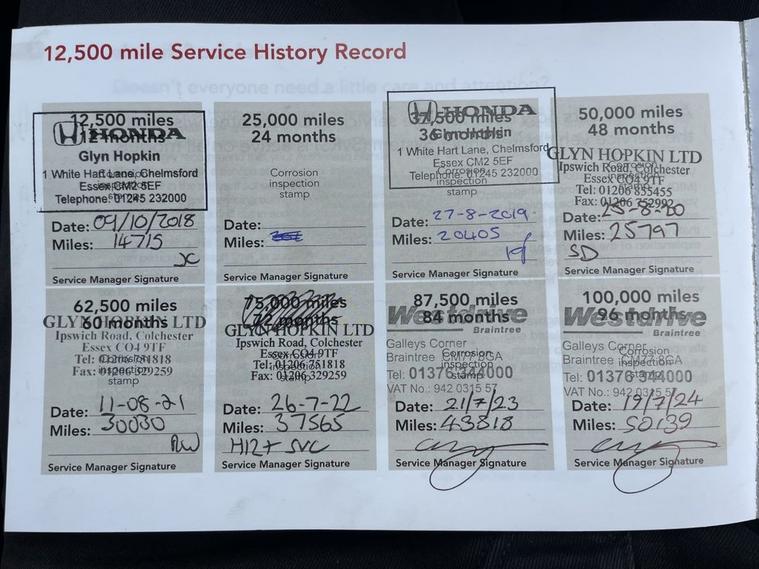 12,500 mile Service History Record
12,500 miles
12 months
HONDA
Glyn Hopkin
1 White Hart Lane, Chelmsford
Essex CM2 5EF
Telephone: 01245 232000
Date: 09/10/2018
Miles: 14715
JC
Service Manager Signature
25,000 miles
24 months
Corrosion
inspection
stamp
Date:
Miles:
Service Manager Signature
37,500 miles
36 months
HONDA
Glyn Hopkin
1 White Hart Lane, Chelmsford
Essex CM2 5EF
Telephone: 01245 232000
Corrosion
inspection
stamp
Date: 27-8-2019
Miles: 20405
Service Manager Signature
50,000 miles
48 months
GLYN HOPKIN LTD
Ipswich Road, Colchester
Essex CO4 9TF
Tel: 01206 855455
Fax: 01206 752992
Date: 25-8-20
Miles: 25797
SD
Service Manager Signature
62,500 miles
60 months
GLYN HOPKIN LTD
Ipswich Road, Colchester
Essex CO4 9TF
Tel: 01206 751818
Fax: 01206 329259
stamp
Date: 11-08-21
Miles: 30030
RW
Service Manager Signature
75,000 miles
72 months
GLYN HOPKIN LTD
Ipswich Road, Colchester
Essex CO4 9TF
Tel: 01206 751819
Fax: 01206 329259
Date: 26-7-22
Miles: 37565
Service Manager Signature
87,500 miles
84 months
Westdrive
Braintree
Galleys Corner
Braintree CM77 8GA
Tel: 01376 344000
VAT No.: 942 0315 57
Date: 21/7/23
Miles: 43818
Service Manager Signature
100,000 miles
96 months
Westdrive
Braintree
Galleys Corner
Braintree CM77 8GA
Tel: 01376 344000
VAT No.: 942 0315 57
Date: 19/7/24
Miles: 50139
Service Manager Signature